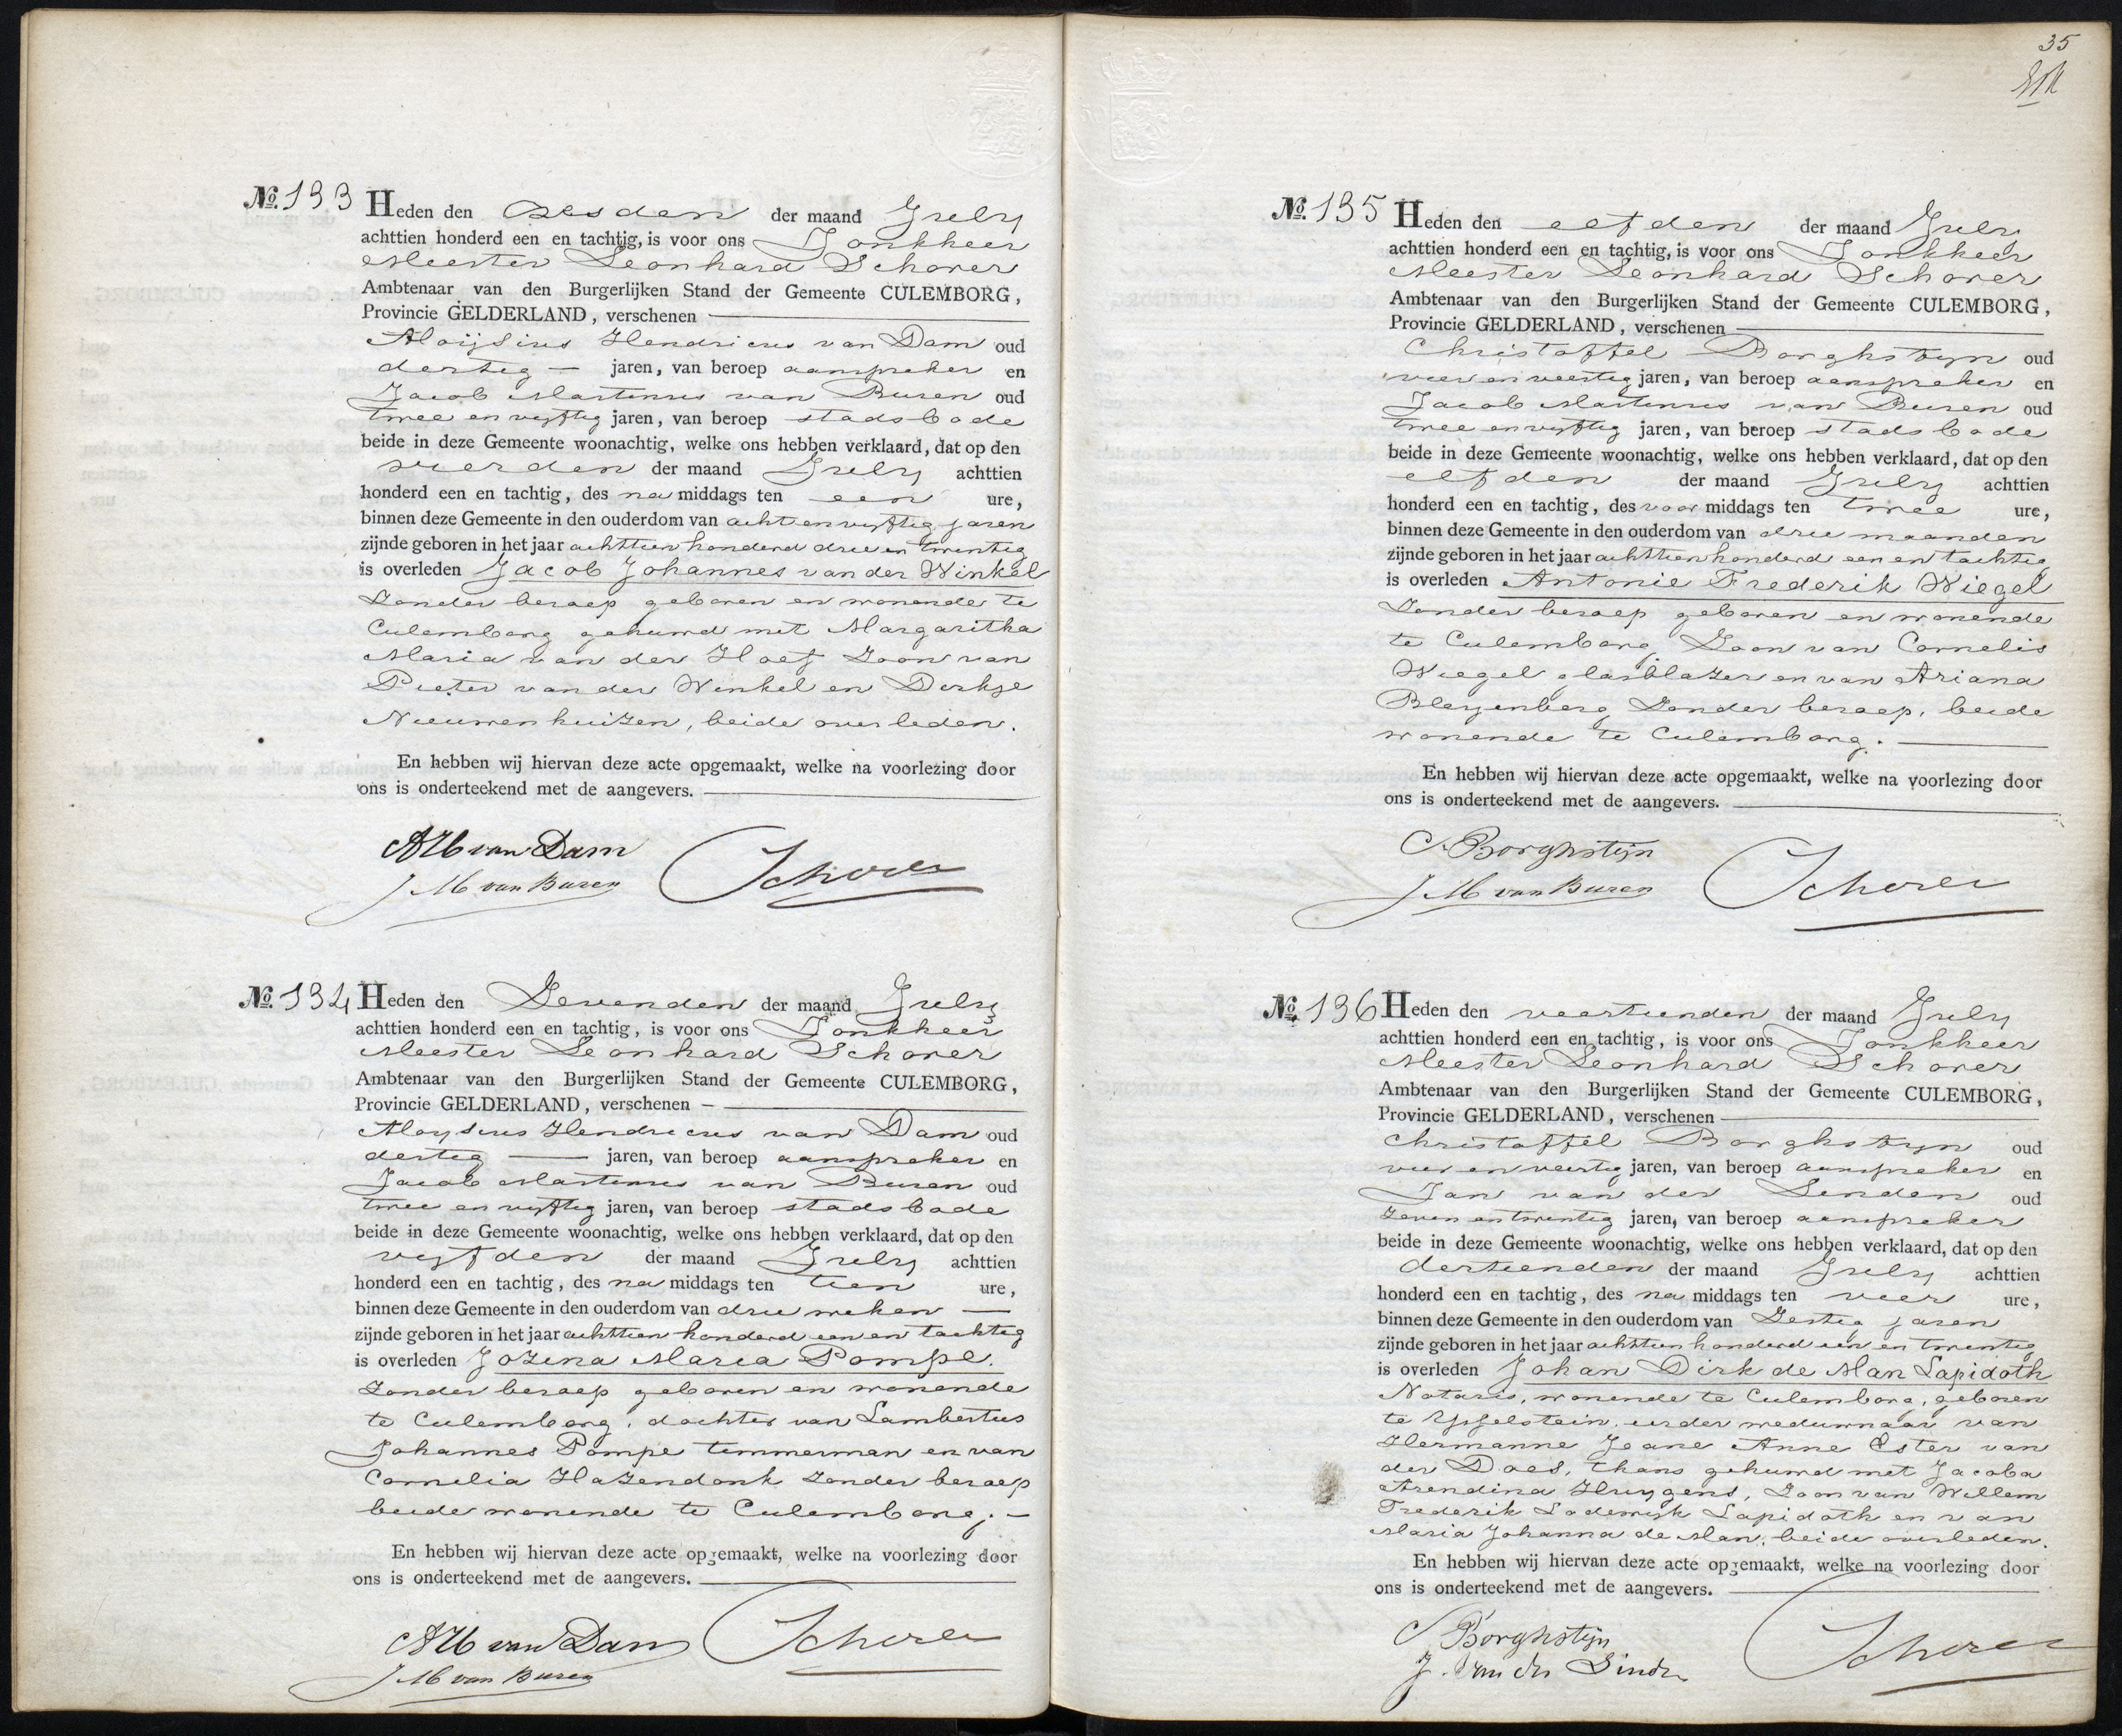 No. 133 Heden den zesden der maand July
achttien honderd een en tachtig, is voor ons Jonkheer
Meester Leonhard Schorer
Ambtenaar van den Burgerlijken Stand der Gemeente CULEMBORG,
Provincie GELDERLAND, verschenen
Aloijsius Hendricus van Dam oud
dertig — jaren, van beroep aanspreker en
Jacob Martinus van Buren oud
twee en vyftig jaren, van beroep stadsbode
beide in deze Gemeente woonachtig, welke ons hebben verklaard, dat op den
vierden der maand July achttien
honderd een en tachtig, des namiddags ten een ure,
binnen deze Gemeente in den ouderdom van acht en vyftig jaren
zijnde geboren in het jaar achttien honderd drie en twintig
is overleden Jacob Johannes van der Winkel
zonder beroep geboren en wonende te
Culemborg gehuwd met Margaritha
Maria van der Hoef zoon van
Pieter van der Winkel en Derkje
Nieuwenhuizen, beide overleden.
En hebben wij hiervan deze acte opgemaakt, welke na voorlezing door
ons is onderteekend met de aangevers.
AH van Dam
JM van Buren Schorer
No. 134 Heden den Zevenden der maand July
achttien honderd een en tachtig, is voor ons Jonkheer
Meester Leonhard Schorer
Ambtenaar van den Burgerlijken Stand der Gemeente CULEMBORG,
Provincie GELDERLAND, verschenen —
Aloysius Hendricus van Dam oud
dertig — jaren, van beroep aanspreker en
Jacob Martinus van Buren oud
twee en vyftig jaren, van beroep stadsbode
beide in deze Gemeente woonachtig, welke ons hebben verklaard, dat op den
vyfden der maand July achttien
honderd een en tachtig, des namiddags ten tien ure,
binnen deze Gemeente in den ouderdom van drie weken —
zijnde geboren in het jaar achttien honderd een en tachtig
is overleden Jozina Maria Pompe.
zonder beroep geboren en wonende
te Culemborg, dochter van Lambertus
Johannes Pompe timmerman en van
Cornelia Hazendonk zonder beroep
beide wonende te Culemborg. —
En hebben wij hiervan deze acte opgemaakt, welke na voorlezing door
ons is onderteekend met de aangevers.
AH van Dam Schorer
JM van Buren
35
No. 135 Heden den elfden der maand July
achttien honderd een en tachtig, is voor ons Jonkheer
Meester Leonhard Schorer
Ambtenaar van den Burgerlijken Stand der Gemeente CULEMBORG,
Provincie GELDERLAND, verschenen
Christoffel Borghstyn oud
vier en veertig jaren, van beroep aanspreker en
Jacob Martinus van Buren oud
twee en vyftig jaren, van beroep stadsbode
beide in deze Gemeente woonachtig, welke ons hebben verklaard, dat op den
elfden der maand July achttien
honderd een en tachtig, des voormiddags ten twee ure,
binnen deze Gemeente in den ouderdom van drie maanden
zijnde geboren in het jaar achttien honderd een en tachtig
is overleden Antonie Frederik Wiegel
zonder beroep geboren en wonende
te Culemborg Zoon van Cornelis
Wiegel glasblazer en van Ariana
Bleyenberg Zonder beroep, beide
wonende te Culemborg.
En hebben wij hiervan deze acte opgemaakt, welke na voorlezing door
ons is onderteekend met de aangevers.
C. Borghstijn
JM van Buren Schorer
No. 136 Heden den veertienden der maand July
achttien honderd een en tachtig, is voor ons Jonkheer
Meester Leonhard Schorer
Ambtenaar van den Burgerlijken Stand der Gemeente CULEMBORG,
Provincie GELDERLAND, verschenen
Christoffel Borghstyn oud
vier en veertig jaren, van beroep aanspreker en
Jan van der Linden oud
zeven en twintig jaren, van beroep aanspreker
beide in deze Gemeente woonachtig, welke ons hebben verklaard, dat op den
dertienden der maand July achttien
honderd een en tachtig, des namiddags ten vier ure,
binnen deze Gemeente in den ouderdom van Zestig jaren
zijnde geboren in het jaar achttien honderd een en twintig
is overleden Johan Dirk de Man Lapidoth
Notaris, wonende te Culemborg, geboren
te Ysselstein, eerder weduwnaar van
Hermanne Jeane Anne Ester van
der Does, thans gehuwd met Jacoba
Arendina Huygens, Zoon van Willem
Frederik Lodewyk Lapidoth en van
Maria Johanna de Man, beide overleden.
En hebben wij hiervan deze acte opgemaakt, welke na voorlezing door
ons is onderteekend met de aangevers.
C Borghstijn
J. van der Linden Schorer